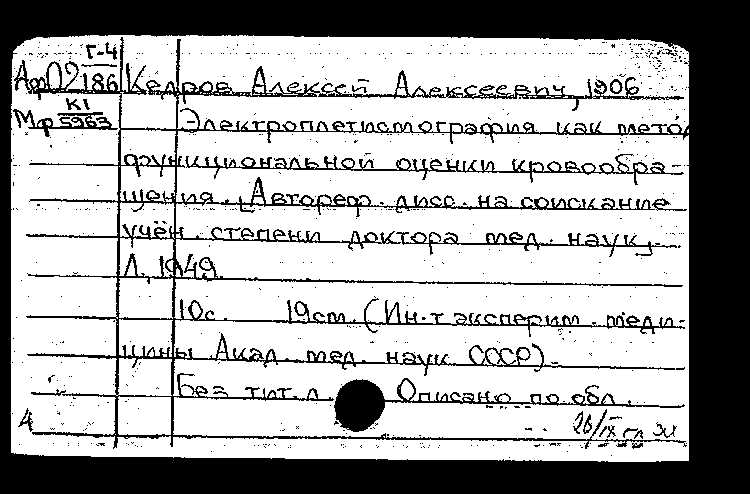 Г-4
Аф02 186 Кедров Алексей Алексеевич, 1906
К1
Мф 5963 Электроплетисмография как метод
функциональной оценки кровообра-
щения. [Автореф. дисс. на соискание
учён. степени доктора мед. наук].
Л., 1949.
10с. 19см. (Ин-т эксперим. меди-
цины Акад. мед. наук СССР).
Без тит. л. Описано по обл.
4